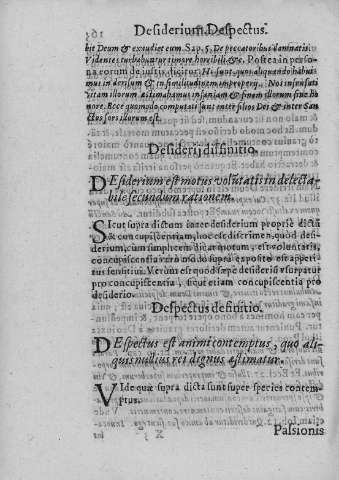 Desiderium. Despectus.
bit Deum & exaudiet eum Sap. 5. De peccatoribus damnatis.
Videntes turbabuntur timore horribili &c. Postea in perso-
na eorum de iustis dicitur Hi sunt quos aliquando habui-
mus in derisum & in similitudinem improperij. Nos insensati
vitam illorum æstimabamus insaniam & finem illorum sine ho-
nore. Ecce quomodo computati sunt inter filios Dei & inter San-
ctos sors illorum est.
Desiderij diffinitio.
DEsiderium est motus volūtatis in delecta-
bile secundum rationem.
SIcut supra dictum est de desiderium propriè dictū
à concupiscentiam, hoc est discrimen: quod desi-
derium, cum simpliciter dicatur motum, est voluntatis,
concupiscentia verò modo supra exposito est appeti-
tus sensitiui. Verùm est quòd sæpè desideriū vsurpatur
pro concupiscentia, sicut etiam concupiscentia pro
desiderio.
Despectus definitio.
DEspectus est animi contemptus, quo ali-
quis nullius rei dignus æstimatur.
VIde quæ supra dicta sunt super species contem-
ptus.
Passionis